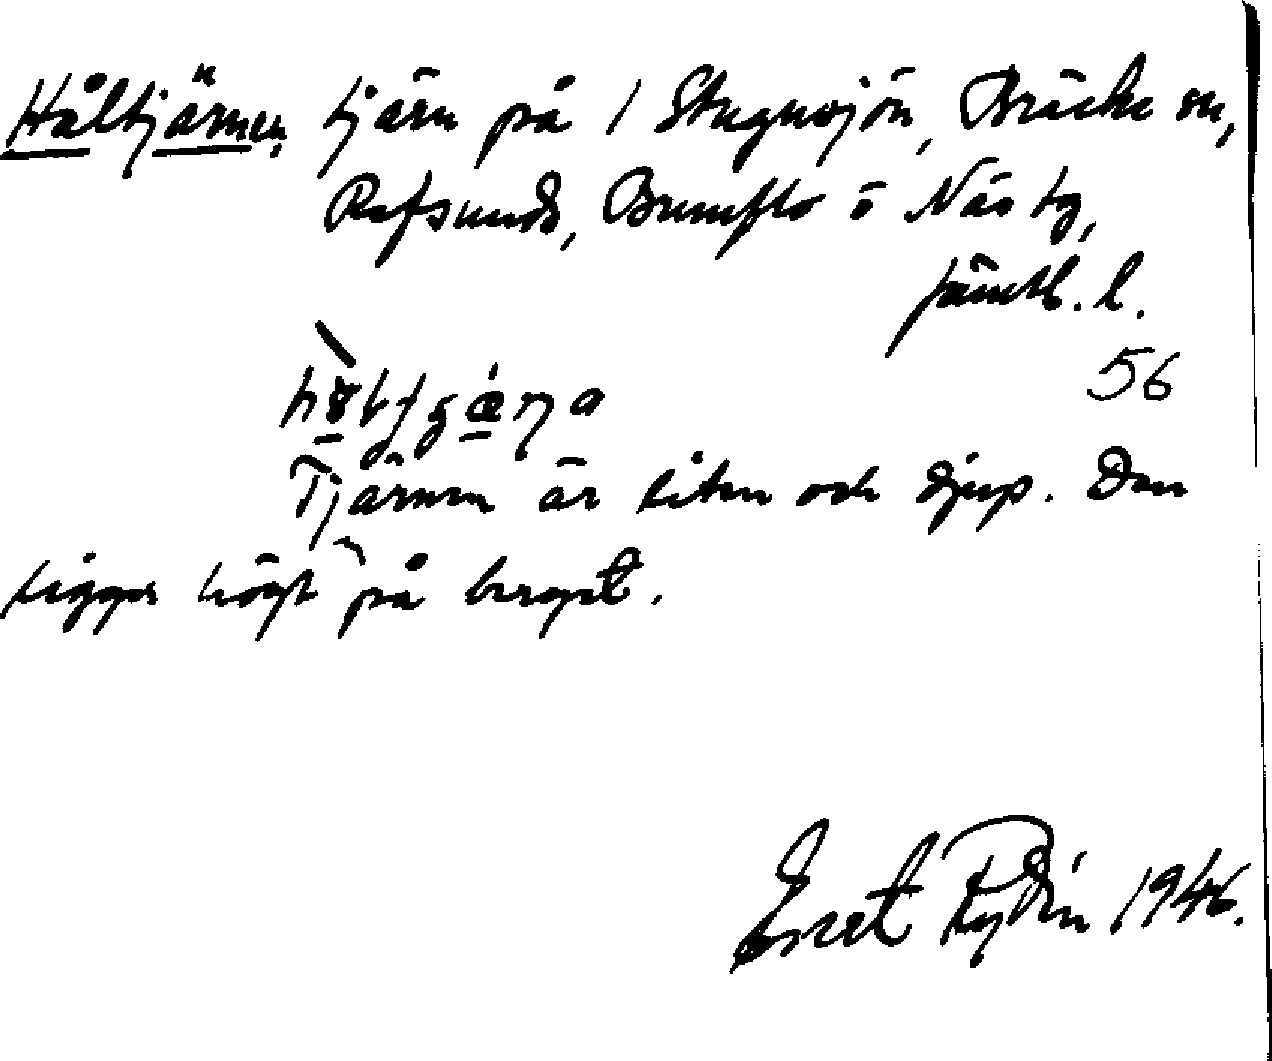 Håltjärnen, tjärn på 1 Stugusjön, Bräcke sn,
Refsunds, Brunflo o Näs tg,
Jämtl. l.
56
Tjärnen är liten och djup. Den
ligger högt på berget.
Rydin 1946.